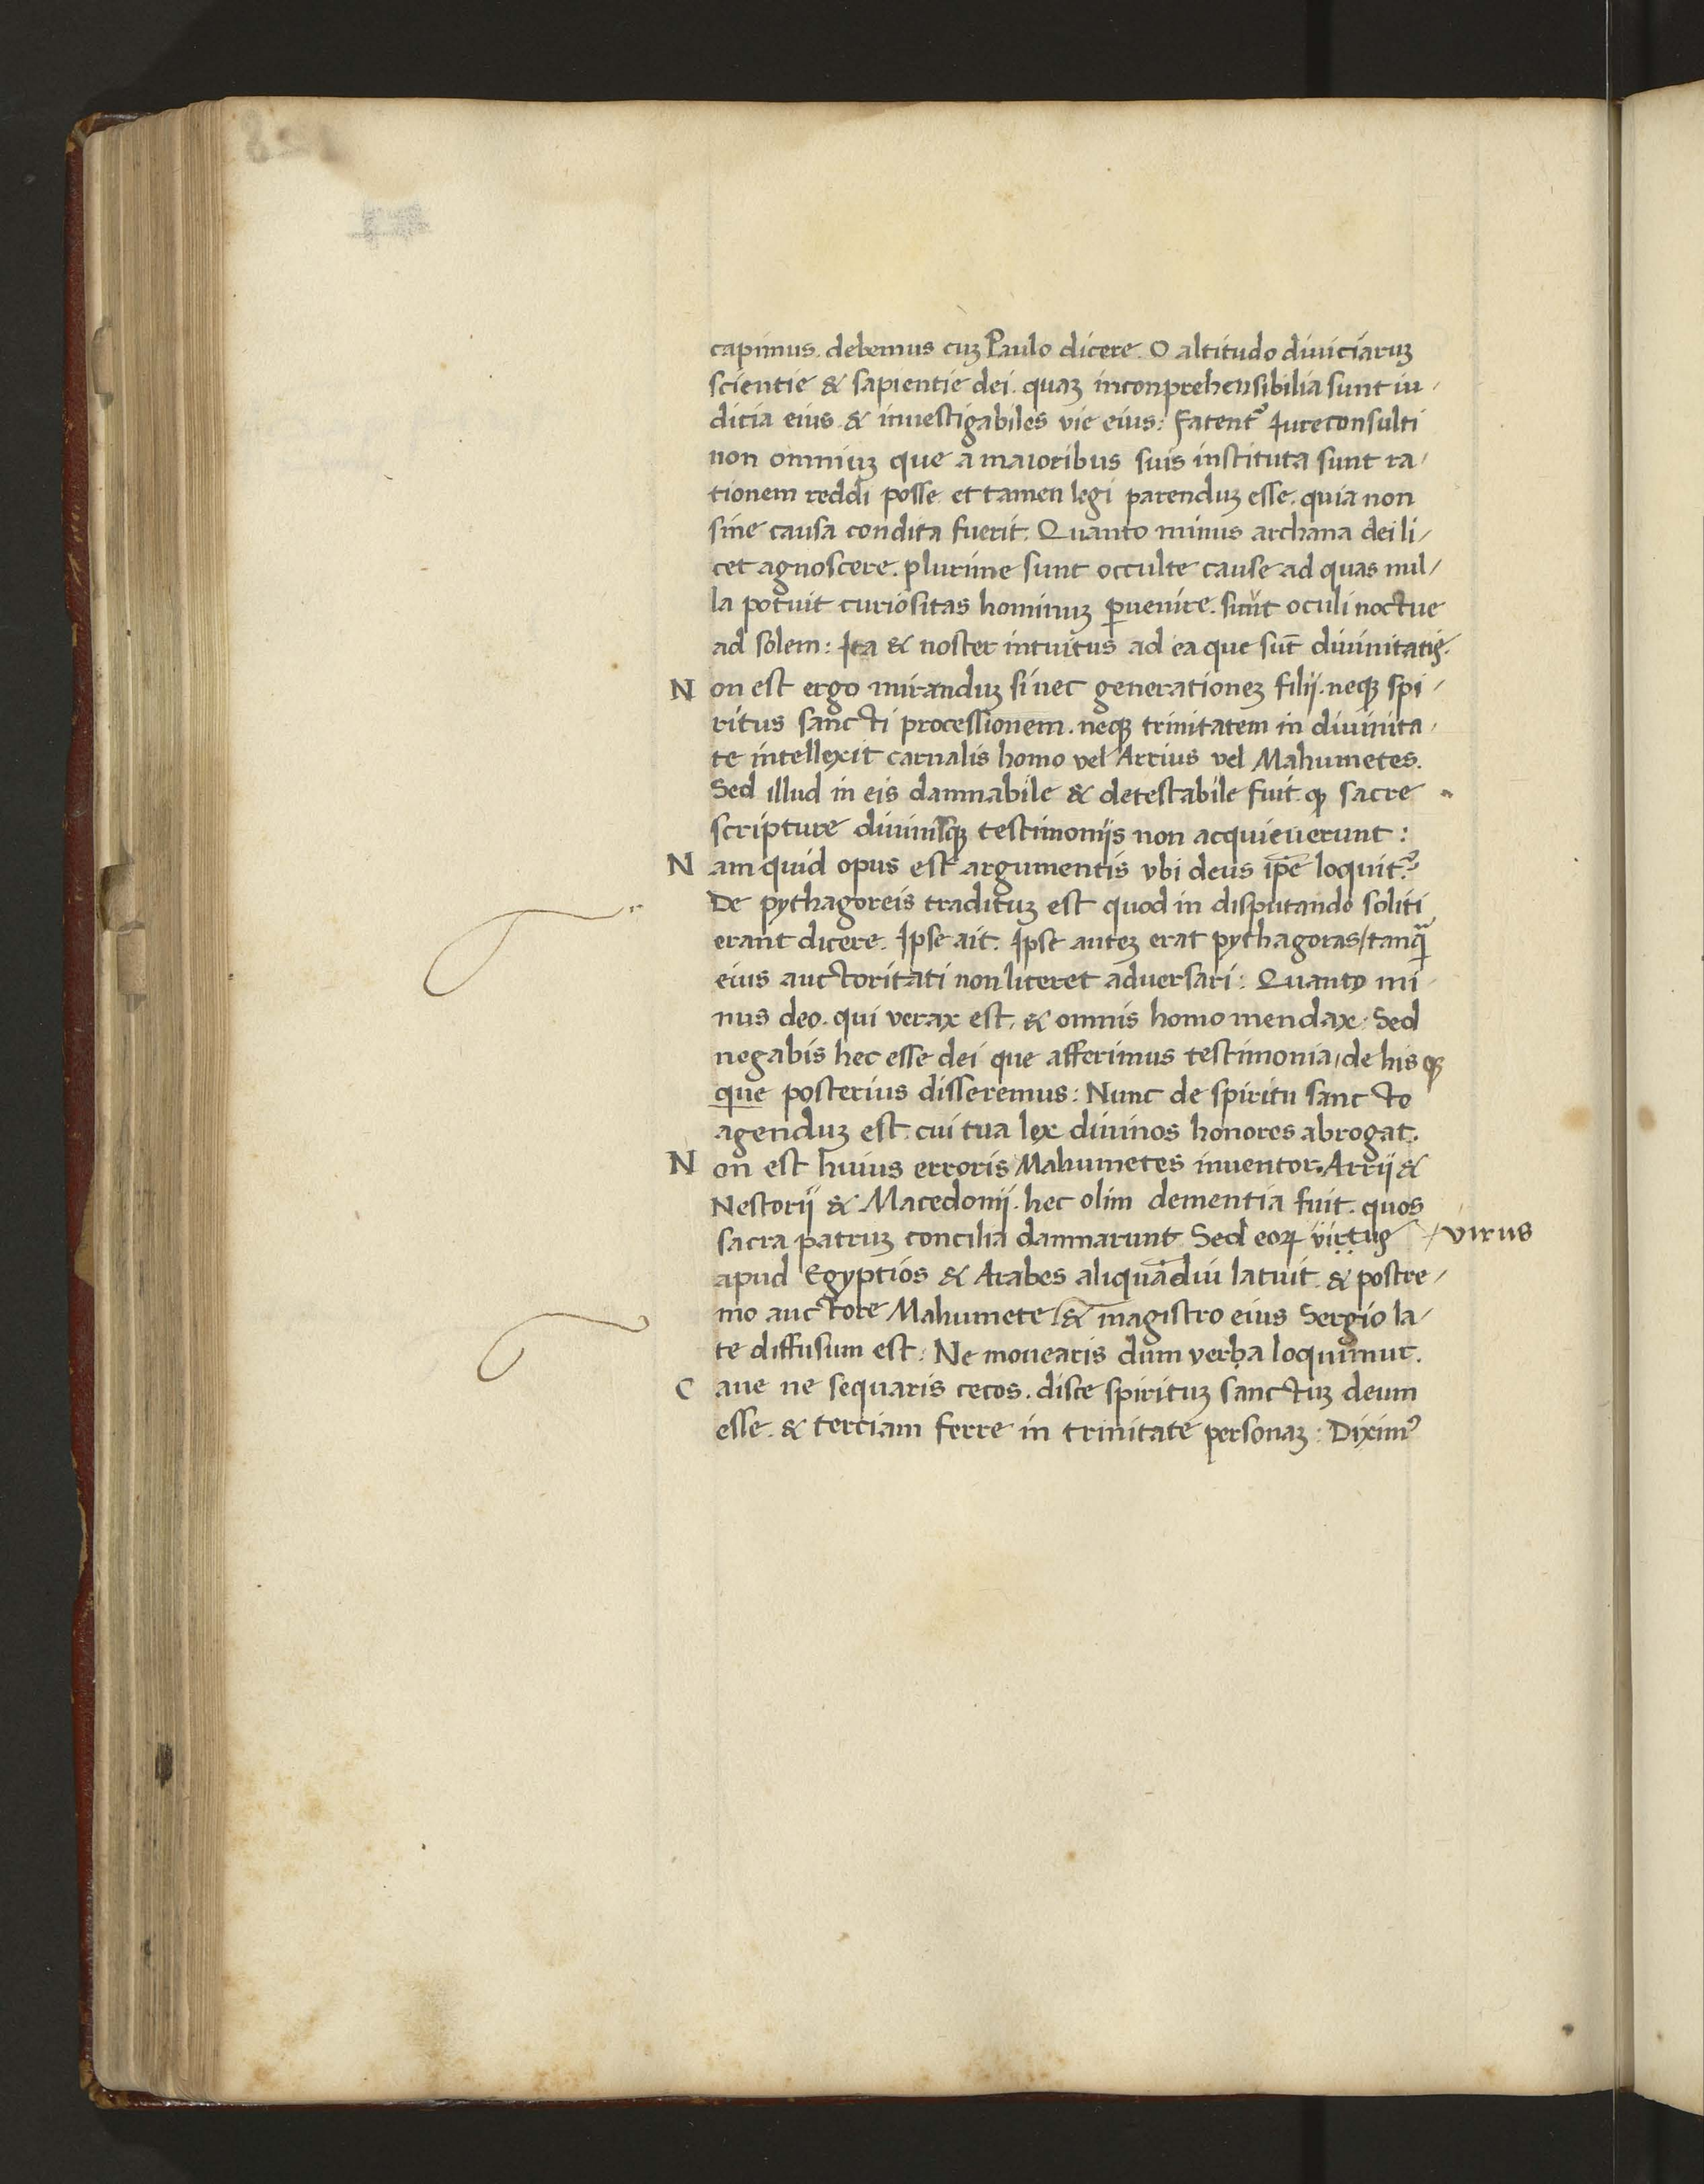 capimus. debemus cuꝫ Paulo dicere. O altitudo diuiciaruꝫ
scientie & sapientie dei. quaꝫ inconprehensibilia sunt iu-
dicia eius. & inuestigabiles vie eius: Fatent᷑ Iureconsulti
non omniuꝫ que a maioribus suis instituta sunt ra-
tionem reddi posse. et tamen legi parenduꝫ esse. quia non
sine causa condita fuerit. Quanto minus archana dei li-
cet agnoscere. plurime sunt occulte cause ad quas nul-
la potuit curiositas hominuꝫ ꝑuenire. sicut oculi noctue
ad solem: Ita & noster intuitus ad ea que sūt diuinitatis.
Non est ergo miranduꝫ si nec generationeꝫ filij. neqꝫ spi-
ritus sancti processionem. neqꝫ trinitatem in diuinita-
te intellexit carnalis homo vel Arrius vel Mahumetes.
Sed illud in eis damnabile & detestabile fuit. ꝙ sacre
scripture diuinisqꝫ testimonijs non acquieuerunt:
Nam quid opus est argumentis vbi deus ip̄e loquit᷑?
De pythagoreis tradituꝫ est quod in disputando soliti
erant dicere. Ipse ait. Ipse auteꝫ erat pythagoras/tanqͣ
eius auctoritati non liceret adversari: Quanto mi-
nus deo. qui verax est. & omnis homo mendax: Sed
negabis hec esse dei que afferimus testimonia, de his qꝫ
que posterius disseremus: Nunc de spiritu sancto
agenduꝫ est. cui tua lex diuinos honores abrogat.
Non est huius erroris Mahumetes inuentor. Arrij &
Nestorij & Macedonij. hec olim dementia fuit. quos
sacra patruꝫ concilia damnarunt. Sed eoꝝ virtus /virus
apud Egyptios & Arabes aliquādiu latuit. & postre-
mo auctore Mahumete/& magistro eius Sergio la-
te diffusum est. Ne mouearis dum verba loquimur.
Caue ne sequaris cecos. disce spirituꝫ sanctuꝫ deum
esse. & terciam ferre in trinitate personaꝫ: Diximꝰ